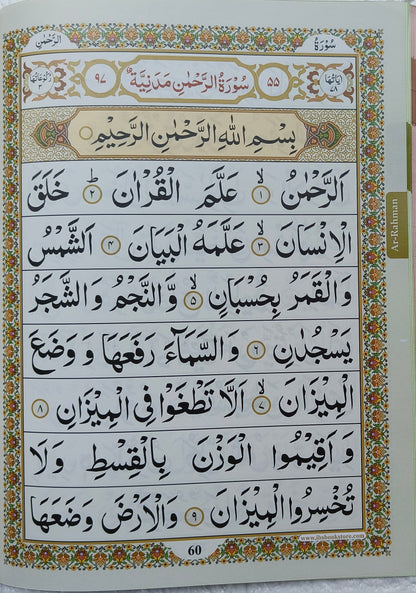 الرَّحۡمٰنِ سُوۡرَةُ
اٰيَاتُهَا ٧٨ ٥٥ سُوۡرَةُ الرَّحۡمٰنِ مَدَنِيَّةٌ ٩٧ رُكُوۡعَاتُهَا ٣
بِسۡمِ اللّٰهِ الرَّحۡمٰنِ الرَّحِيۡمِ
اَلرَّحۡمٰنُ ۙ‏ ١ عَلَّمَ الۡقُرۡاٰنَ ؕ‏ ٢ خَلَقَ
الۡاِنۡسَانَ ۙ‏ ٣ عَلَّمَهُ الۡبَيَانَ ٤ اَلشَّمۡسُ
وَالۡقَمَرُ بِحُسۡبَانٍ ۙ‏ ٥ وَّالنَّجۡمُ وَالشَّجَرُ
يَسۡجُدٰنِ ٦ وَالسَّمَآءَ رَفَعَهَا وَ وَضَعَ
الۡمِيۡزَانَ ۙ‏ ٧ اَلَّا تَطۡغَوۡا فِى الۡمِيۡزَانِ ٨
وَ اَقِيۡمُوا الۡوَزۡنَ بِالۡقِسۡطِ وَلَا
تُخۡسِرُوا الۡمِيۡزَانَ ٩ وَالۡاَرۡضَ وَضَعَهَا
60
www.ibsbookstore.com
Ar-Rahman